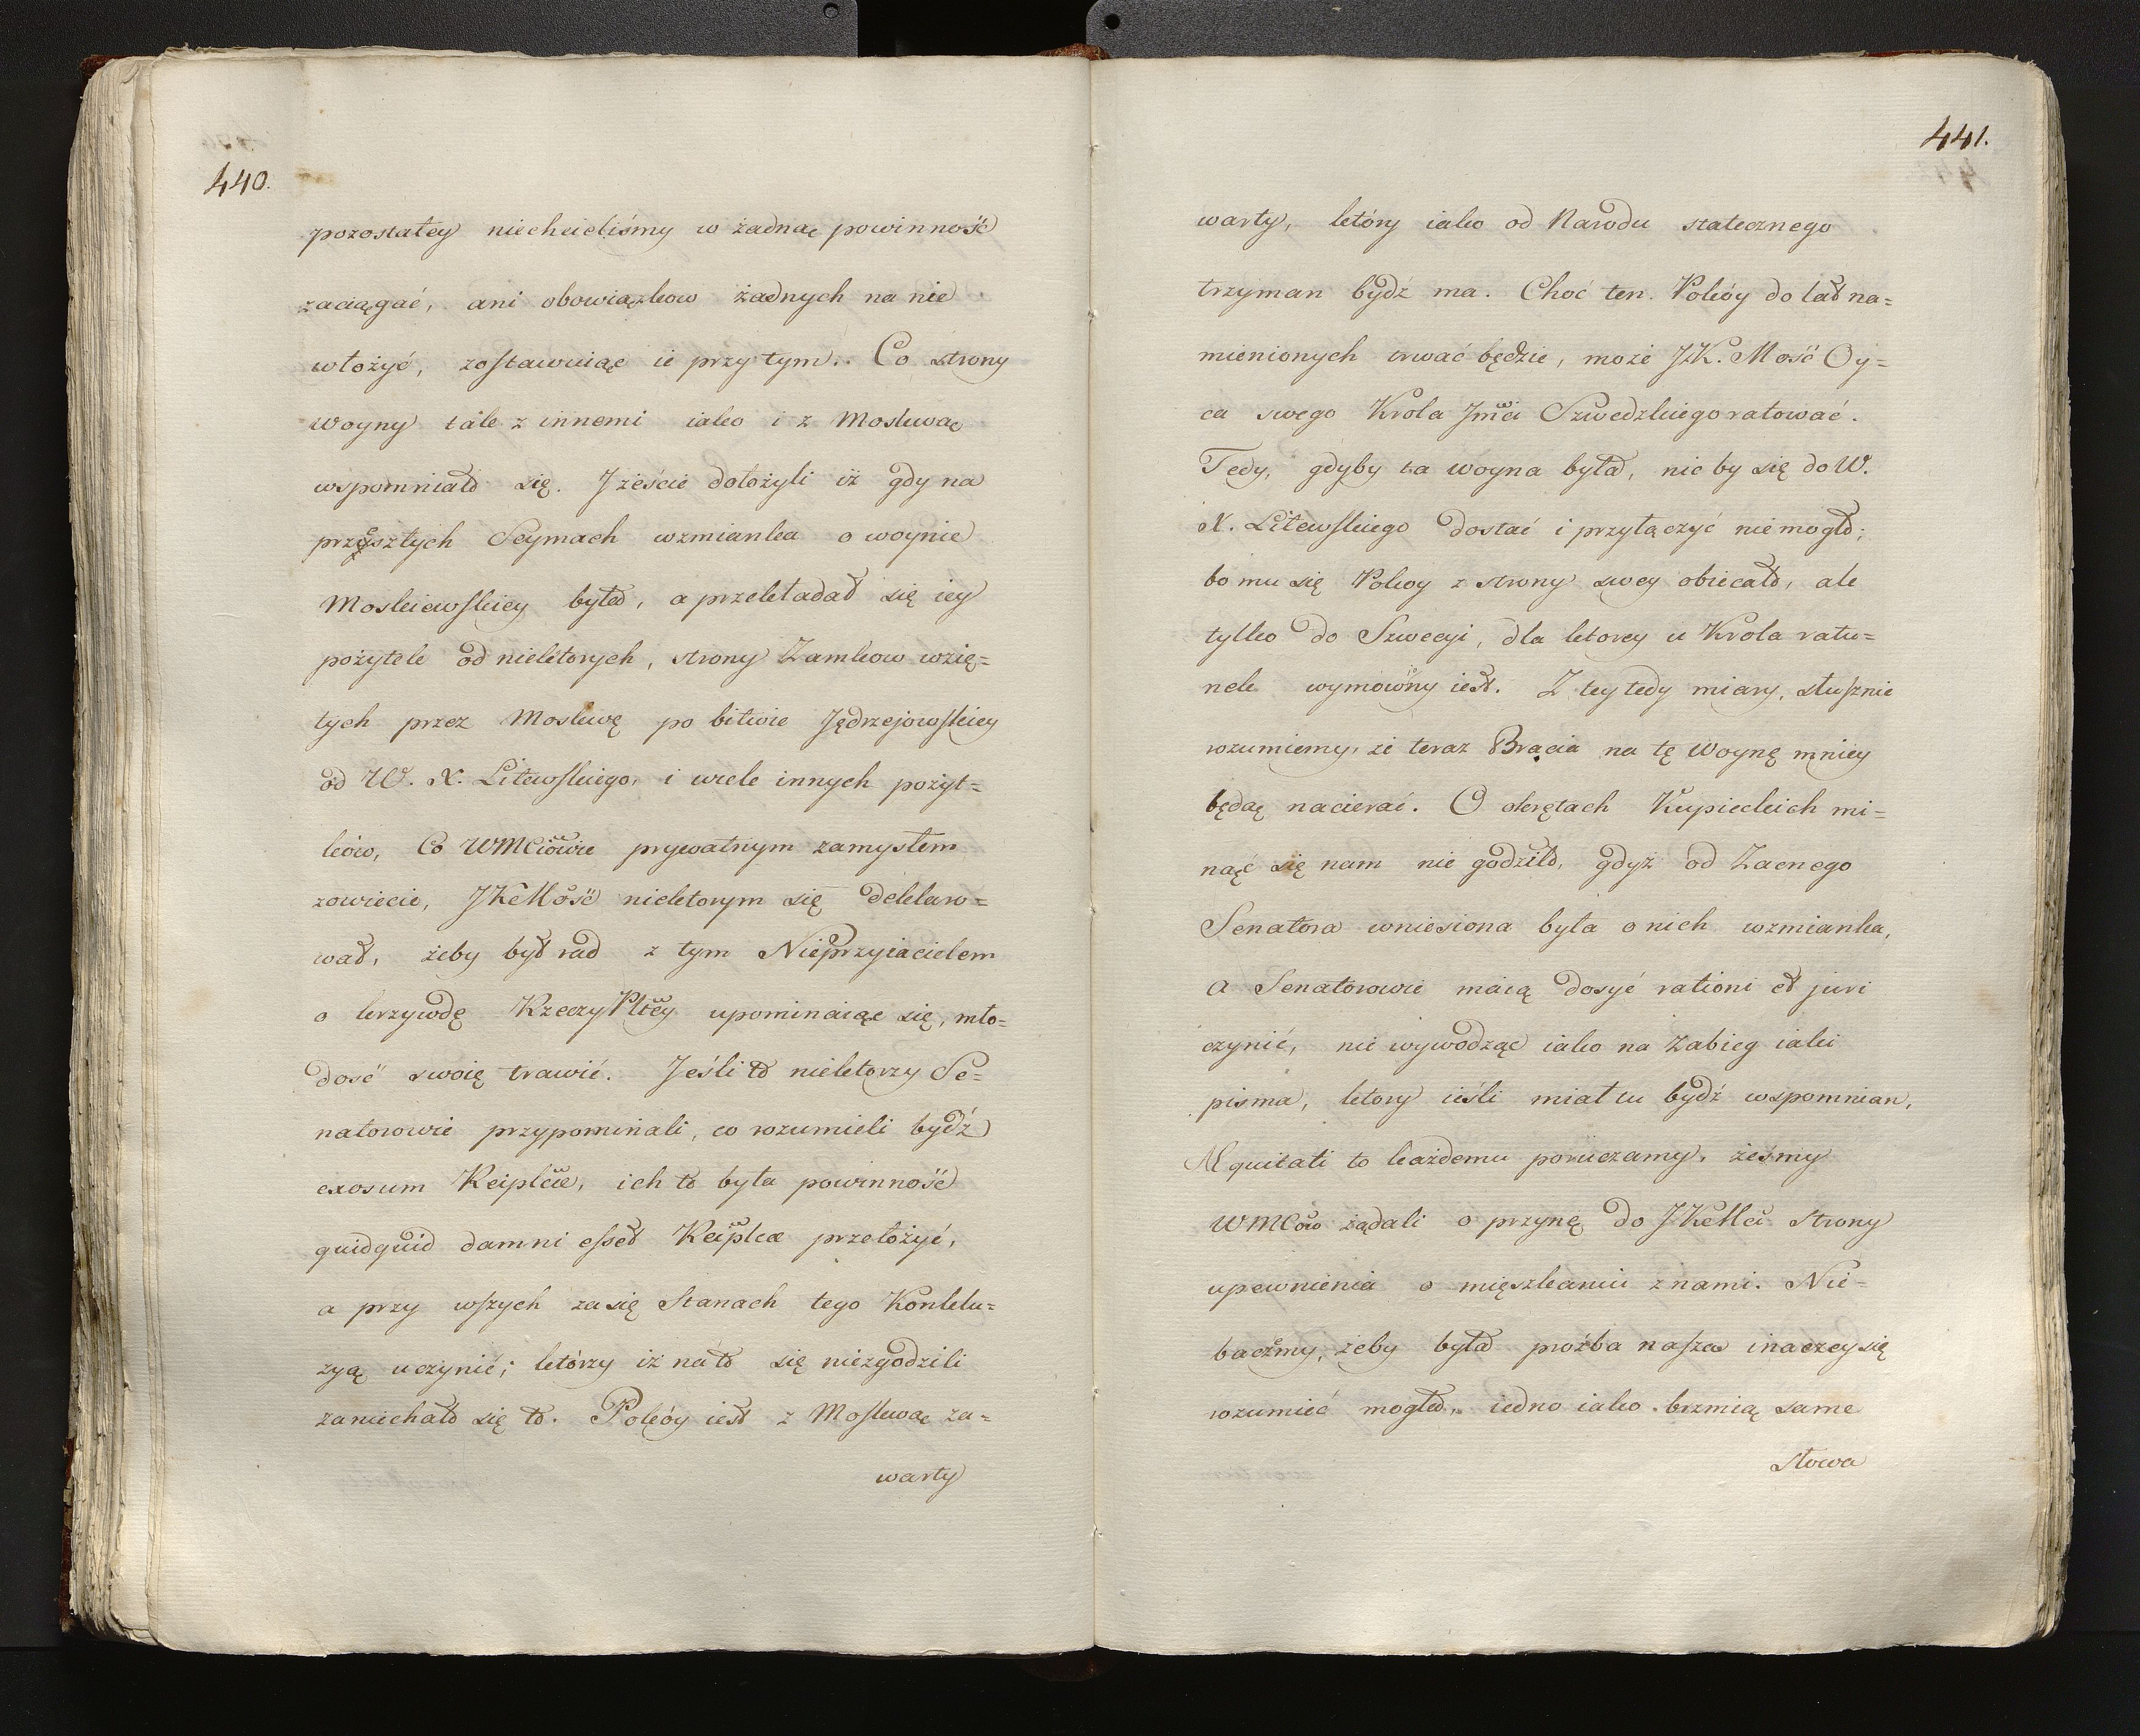 440.
pozostałey niechcieliśmy w żadną powinność
zaciągać, ani obowiązkow żadnych na nie
włożyć, zostawuiąc ie przy tym. Co strony
woyny tak z innemi iako i z Moskwą
wspomniało się. Jżeście dołożyli iż gdy na
przeszłych Seymach wzmianka o woynie
Moskiewskiey była, a przekładał się iey
pożytek od niektorych, strony Zamkow wzię=
tych przez Moskwę po bitwie Jędrzejowskiey
od W. X. Litewskiego, i wiele innych pożyt=
ków, Co WMCiowie prywatnym zamysłem
zowiecie, JKMość niektorym się deklaro=
wał, żeby był rad z tym Nieprzyiacielem
o krzywdę RzeczyPltey upominaiąc się, mło=
dość swoię trawić. Jeśli to niektorzy Se=
natorowie przypominali, co rozumieli bydź
ex osum Reiplcæ, ich to była powinność
quidquid damni esset Reiplcæ przełożyć,
a przy wszych zasię Stanach tego Konklu=
zyą uczynić; którzy iż na to się niezgodzili
zaniechało się to. Pokóy iest z Moskwą za=
warty
441.
warty, który iako od Narodu statecznego
trzyman bydź ma. Choć ten Pokóy do lat na=
mienionych trwać będzie, może JK. Mość Oy=
ca swego Krola Jmci Szwedzkiego ratować.
Tedy, gdyby ta woyna była, nic by się do W.
X. Litewskiego dostać i przyłączyć nie mogło;
bo mu się Pokoy z strony swey obiecało, ale
tylko do Szwecyi, dla ktorey u Krola ratu=
nek wymowiony iest. Z tey tedy miary, słusznie
rozumiemy, że teraz Bracia na tę Woynę mniey
będą nacierać. O okrętach Kupieckich mi=
nąć się nam nie godziło, gdyż od Zacnego
Senatora wniesiona była o nich wzmianka,
a Senatorowie maią dosyć rationi et juri
czynić, nie wywodząc iako na Zabieg iaki
pisma, ktory ieśli miał tu bydź wspomnian,
Æquitati to każdemu poruczamy. żeśmy
WMCiow żądali o przynę do JKMci strony
upewnienia o mięszkaniu z nami. Nie=
baczmy, żeby była proźba nasza inaczey się
rozumieć mogła, iedno iako brzmią same
słowa